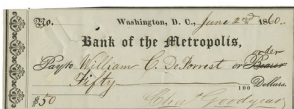 No. Washington, D. C., June 23d 1860.
Bank of the Metropolis,
order
Pay to William C. DeForrest or Bearer
Fifty 100 Dollars.
$50 Chas Goodyear